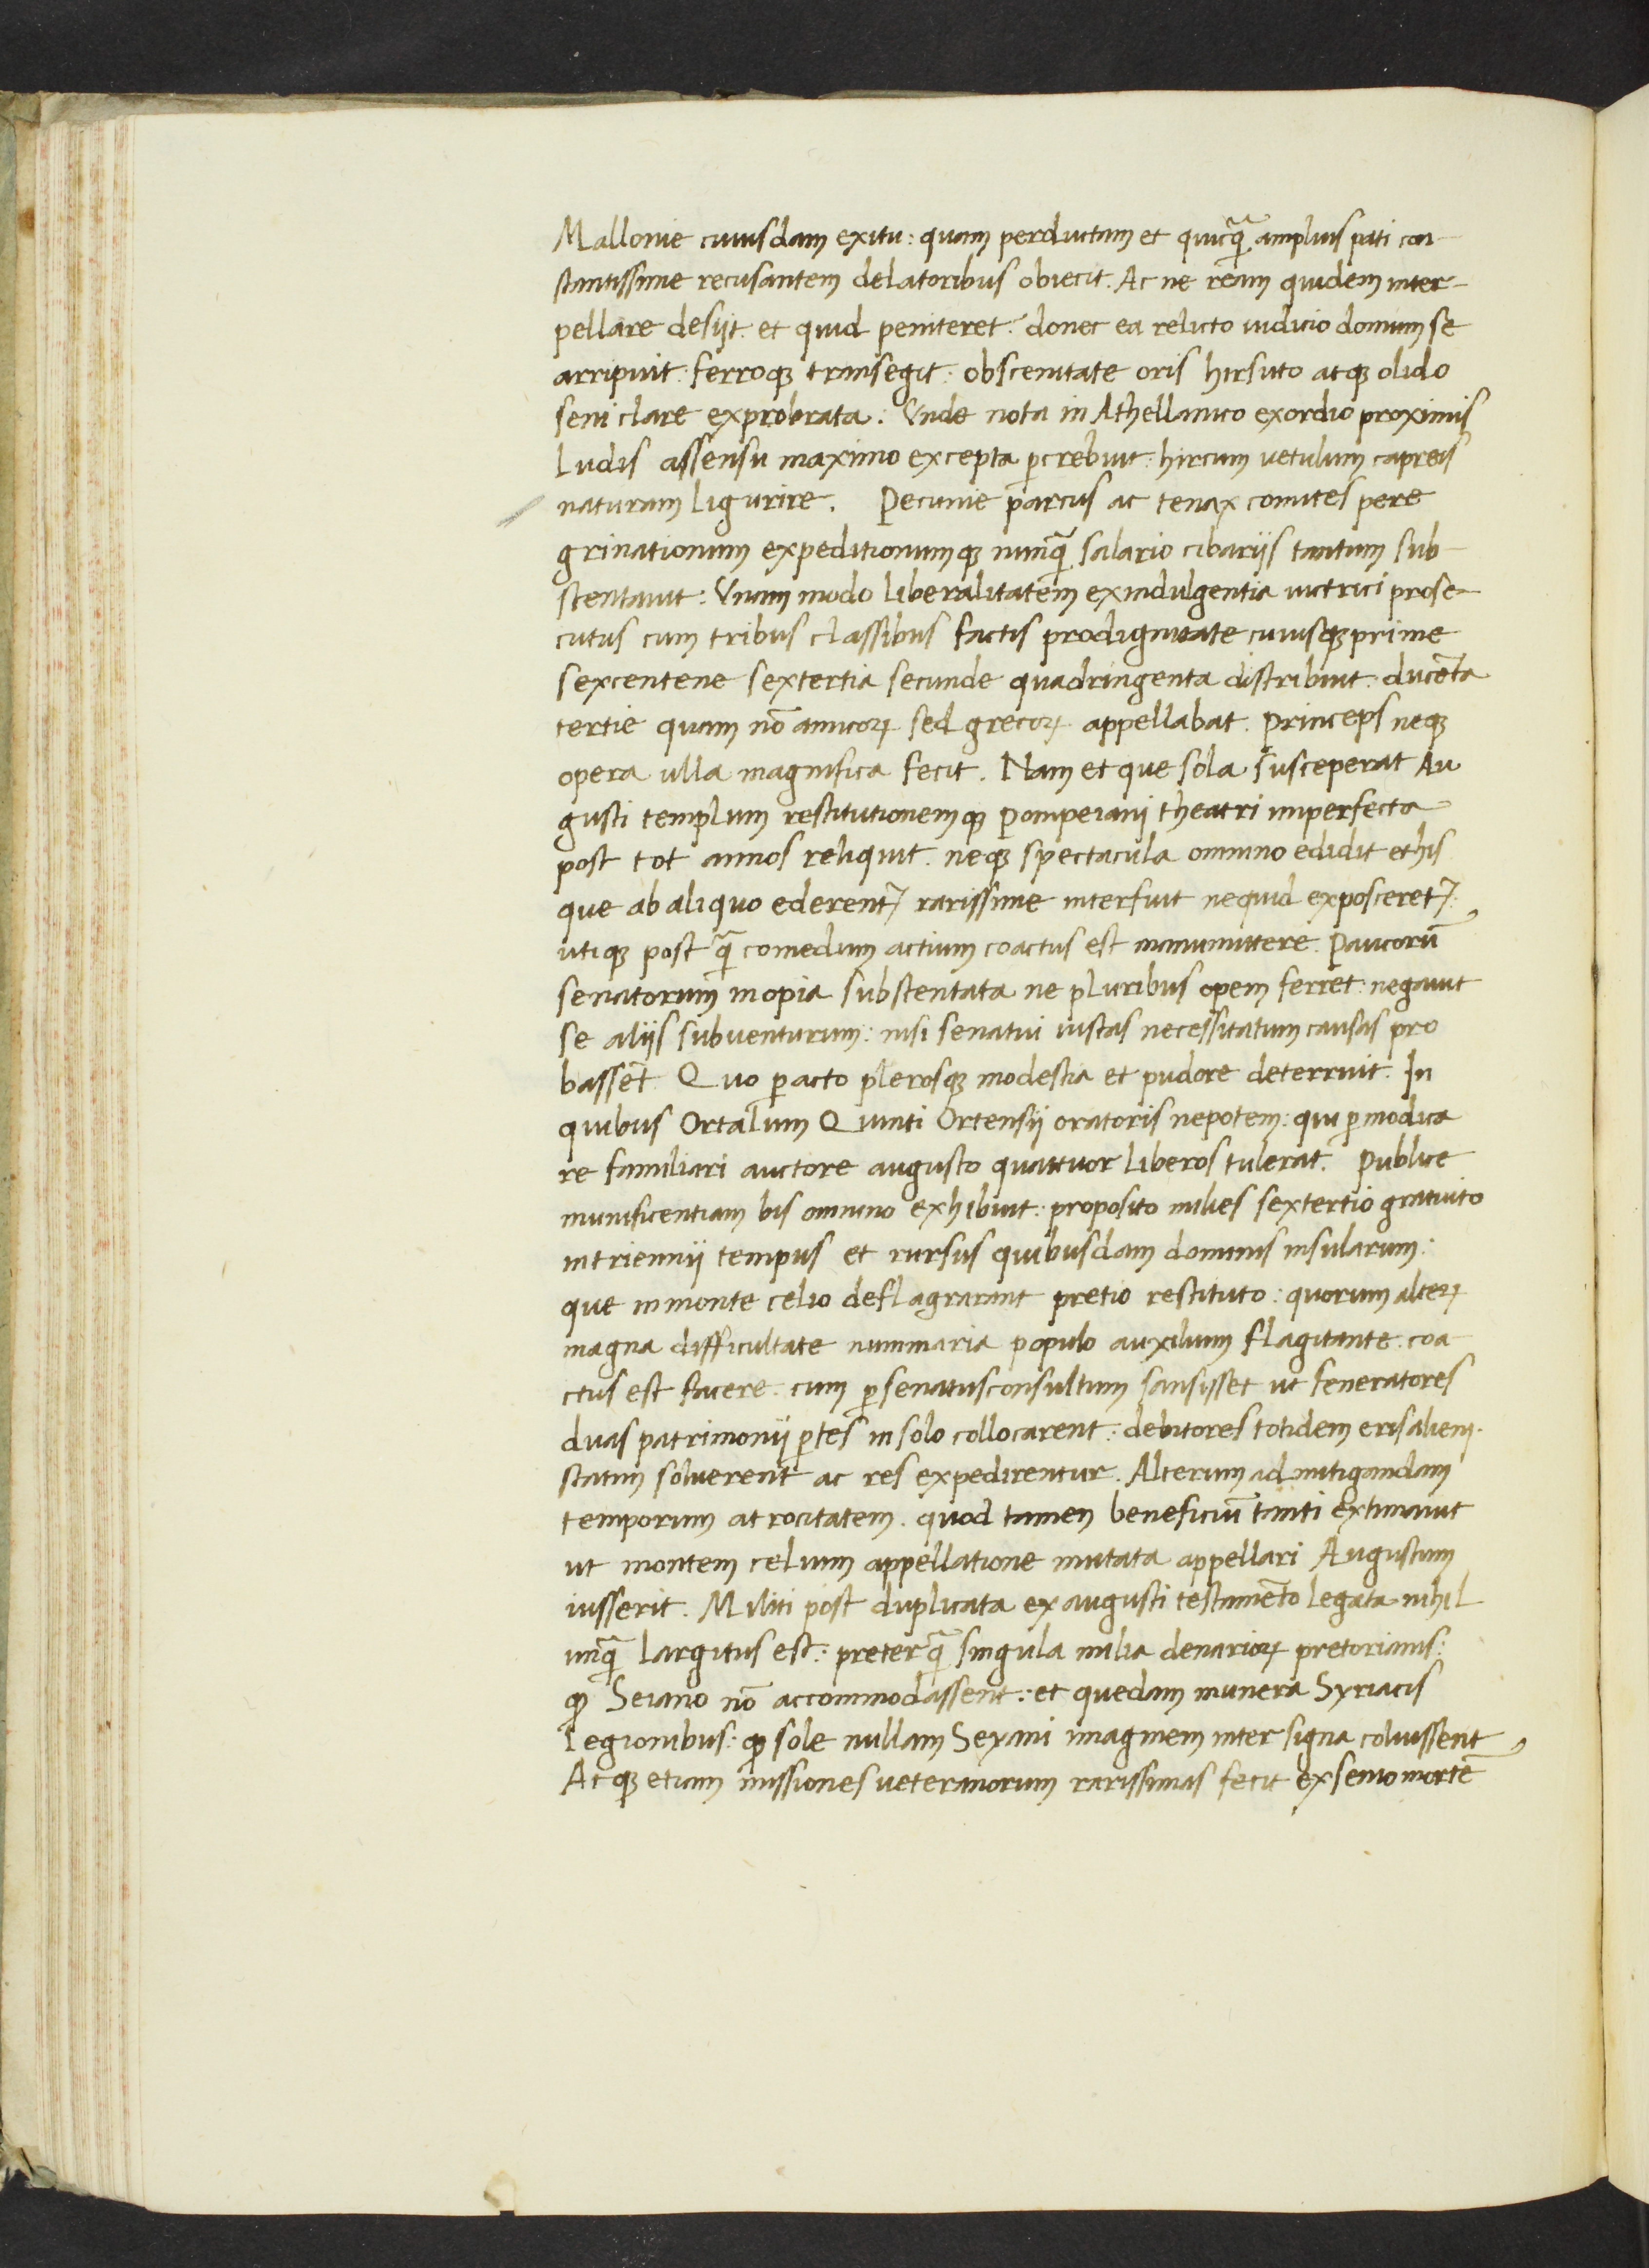 Mallonie cuiusdam exitu: quam perductam et quicꝗ̃ amplius pati con-
stantissime recusantem delatoribus obiecit. Ac ne ream quidem inter-
pellare desijt. et quid peniteret. donec ea relicto iudicio domum se
arripuit: ferroqꝫ transegit: obscenitate oris hirsuto atqꝫ olido
seni clare exprobrata: Vnde nota in Athellanico exordio proximis
Ludis assensu maximo excepta ꝑcrebuit: hircum uetulum capreis
naturam Ligurire. Pecunie parcus ac tenax comites pere
grinationum expeditionumqꝫ nunꝗ̃ salario cibarijs tantum sub-
stentauit: Vnam modo Liberalitatem ex indulgentia uictrici prose-
cutus cum tribus classibus factis prodignitate cuiusqꝫ prime
sexcentene sextertia secunde quadringenta distribuit: ducẽta
tertie quam nõ amicoꝝ sed grecoꝝ appellabat. Princeps neqꝫ
opera ulla magnifica fecit. Nam et que sola susceperat Au
gusti templum restitutionemqꝫ Pompeiani theatri imperfecta
post tot annos reliquit. neqꝫ spectacula omnino edidit et his
que ab aliquo ederent᷑ rarissime interfuit ne quid exposceret᷑:
utiqꝫ post ꝗ̃ comedum actium coactus est manumittere. Paucorũ
senatorum inopia substentata ne pluribus opem ferret: negauit
se alijs subuenturum: nisi senatui iustas necessitatum causas pro
bassẽt. Quo ꝑacto plerosqꝫ modestia et pudore deterruit. In
quibus Ortalum Quinti Ortensij oratoris nepotem: qui ꝑmodica
re familiari auctore augusto quattuor Liberos tulerat. Publice
munificentiam bis omnino exhibuit: proposito milies sextertio gratuito
in triennij tempus et rursus quibusdam dominis insularum:
que in monte celio deflagrarant pretio restituto: quorum alteꝝ
magna difficultate nummaria populo auxilium flagitante. coa
ctus est facere. cum ꝑ senatusconsultum sansisset ut feneratores
duas patrimonij ꝑtes in solo collocarent: debitores totidem eris alieni.
statim soluerent ac res expedirentur. Alterum ad mitigandam
temporum atrocitatem. quod tamen beneficiũ tanti extimauit
ut montem celium appellatione mutata appellari Augustum
iusserit. Militi post duplicata ex augusti testamẽto Legata nihil
unꝗ̃ Largitus est: preterꝗ̃ singula milia denarioꝝ pretorianis:
ꝙ Seiano nõ accommodassent: et quedam munera Syriacis
Legionibus: ꝙ sole nullam Seyani imaginem inter signa coluissent
Atqꝫ etiam missiones ueteranorum rarissimas fecit ex senio mortẽ